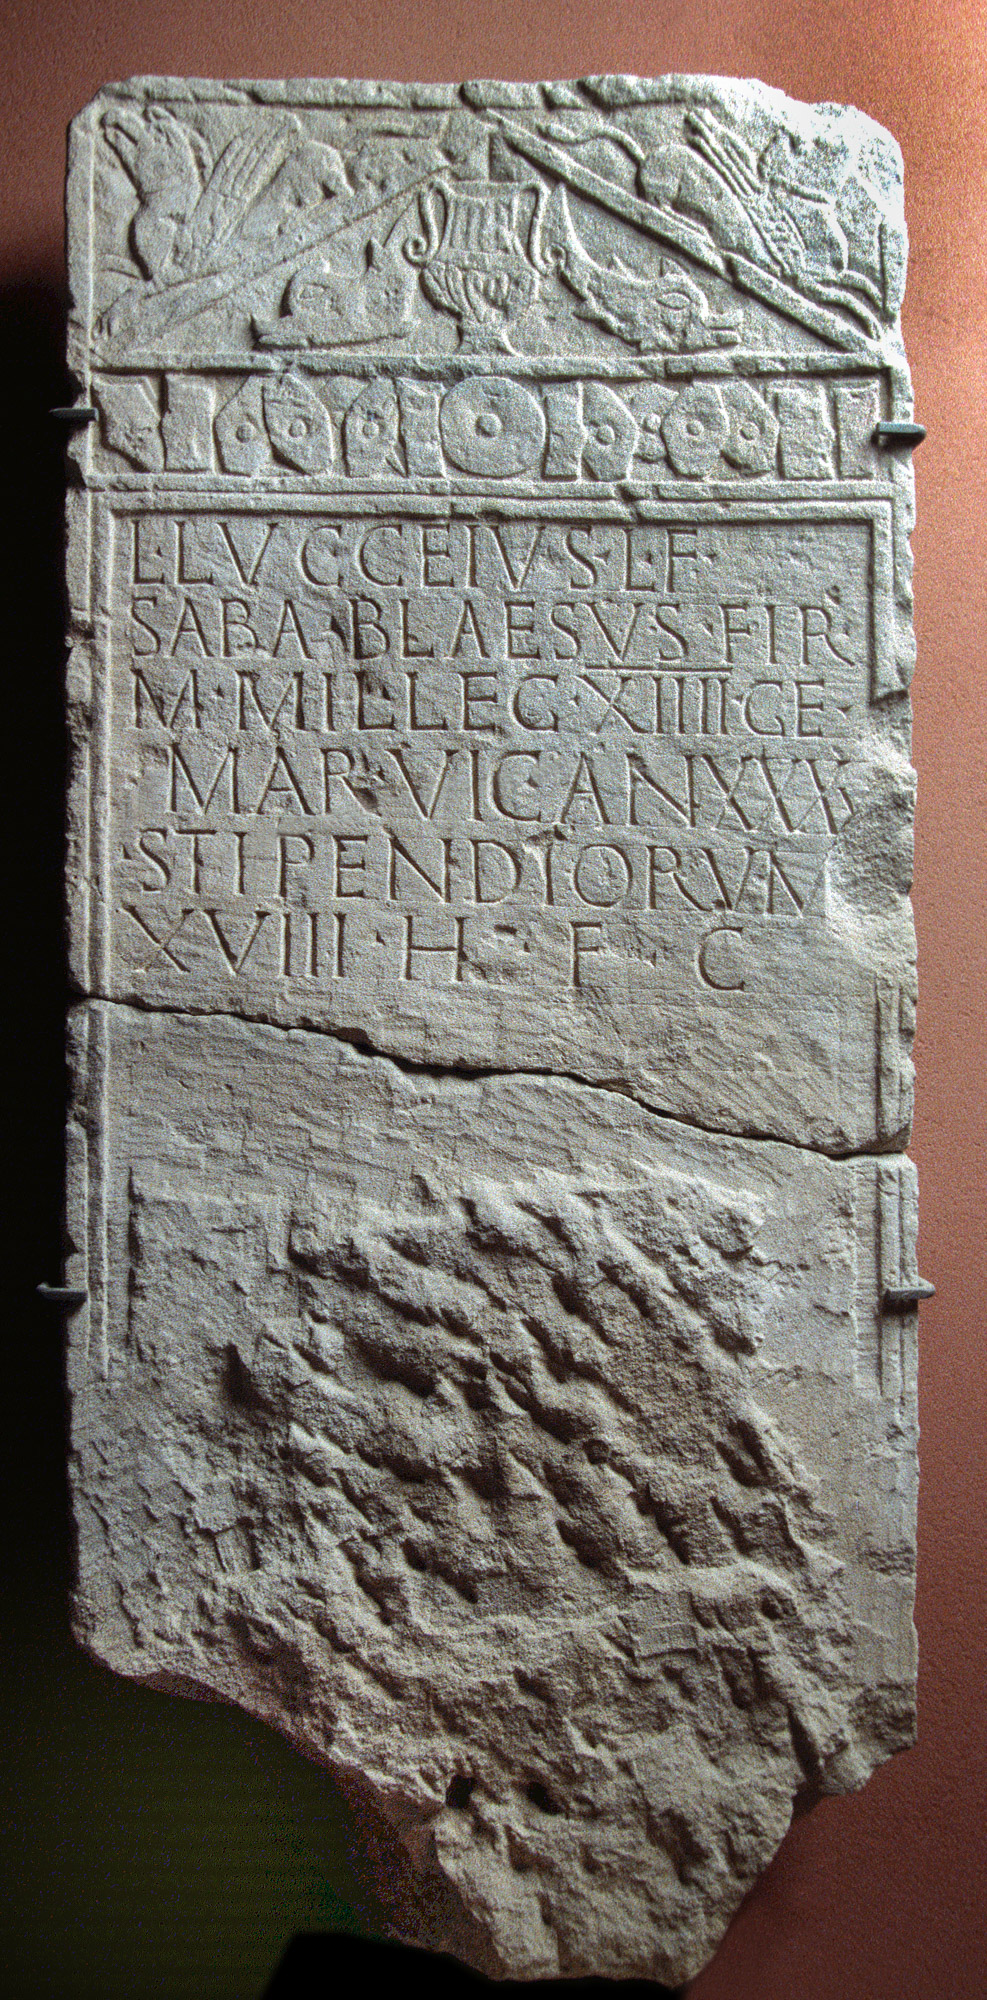 L·LVCCEIVS·L·F·
SABA·BLAESVS·FIR·
M·MIL·LEG·XIIII·GE·
MAR·VIC·ANXXXX
STIPENDIORVM
XVIIII·H·F·C